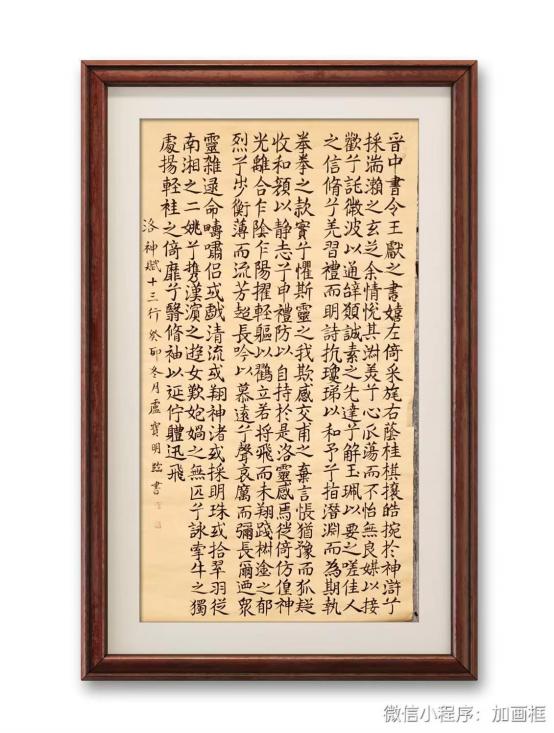 晋中書令王獻之書嬉左倚采旄右蔭桂棋攘皓捥於神滸兮
採湍瀨之玄芝余情悅其淑美兮心振蕩而不怡無良媒以接
歡兮託微波以通辝願誠素之先達兮解玉珮以要之嗟佳人
之信脩兮羌習禮而明詩抗瓊珶以和予兮指潛淵而為期執
拳拳之款實兮懼斯靈之我欺感交甫之棄言悵猶豫而狐疑
收和顏以静志兮申禮防以自持於是洛靈感焉徙倚仿偟神
光離合乍陰乍陽擢輕軀以鶴立若將飛而未翔踐椒塗之郁
烈兮步衡薄而流芳超長吟以慕遠兮聲哀厲而彌長爾迺衆
靈雜遝命疇嘯侣或戲清流或翔神渚或採明珠或拾翠羽從
南湘之二姚兮攜漢濱之遊女歎媧之無匹兮詠牽牛之獨
處揚輕袿之倚靡兮翳脩袖以延佇體迅飛
洛神賦十三行 癸卯冬月盧寶明臨書
微信小程序：加画框